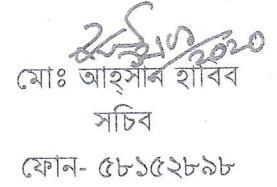 মোঃ আহ্সান হাবিব
সচিব
ফোন- ৫৮১৫২৮৯৮